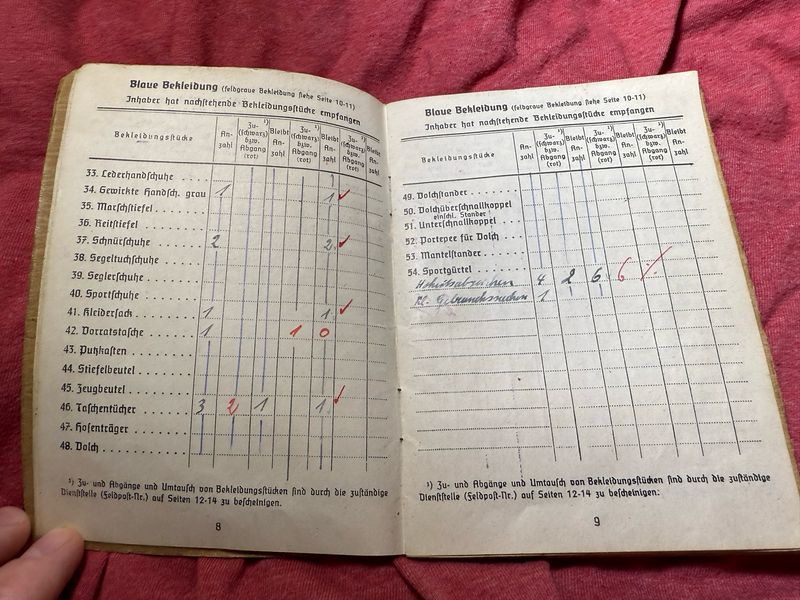 Blaue Bekleidung (feldgraue Bekleidung siehe Seite 10-11)
Inhaber hat nachstehende Bekleidungsstücke empfangen
Bekleidungsstücke An-zahl Zu- ¹) (schwarz) bzw. Abgang (rot) Bleibt An-zahl Zu- ¹) (schwarz) bzw. Abgang (rot) Bleibt An-zahl Zu- ¹) (schwarz) bzw. Abgang (rot) Bleibt An-zahl
33. Lederhandschuhe
34. Gewirkte Handsch. grau 1 1 ✓
35. Marschstiefel
36. Reitstiefel
37. Schnürschuhe 2 2 ✓
38. Segeltuchschuhe
39. Seglerschuhe
40. Sportschuhe
41. Kleidersack 1 1 ✓
42. Vorratstasche 1 1 0
43. Putzkasten
44. Stiefelbeutel
45. Zeugbeutel
46. Taschentücher 3 2 1 1 ✓
47. Hosenträger
48. Dolch
¹) Zu- und Abgänge und Umtausch von Bekleidungsstücken sind durch die zuständige
Dienststelle (Feldpost-Nr.) auf Seiten 12-14 zu bescheinigen.
8
Blaue Bekleidung (feldgraue Bekleidung siehe Seite 10-11)
Inhaber hat nachstehende Bekleidungsstücke empfangen
Bekleidungsstücke An-zahl Zu- ¹) (schwarz) bzw. Abgang (rot) Bleibt An-zahl Zu- ¹) (schwarz) bzw. Abgang (rot) Bleibt An-zahl Zu- ¹) (schwarz) bzw. Abgang (rot) Bleibt An-zahl
49. Dolchstander
50. Dolchüberschnallkoppel
einschl. Stander
51. Unterschnallkoppel
52. Portepee für Dolch
53. Mantelstander
54. Sportgürtel
Hoheitsabzeichen 4 2 6 6 %
1
¹) Zu- und Abgänge und Umtausch von Bekleidungsstücken sind durch die zuständige
Dienststelle (Feldpost-Nr.) auf Seiten 12-14 zu bescheinigen:
9